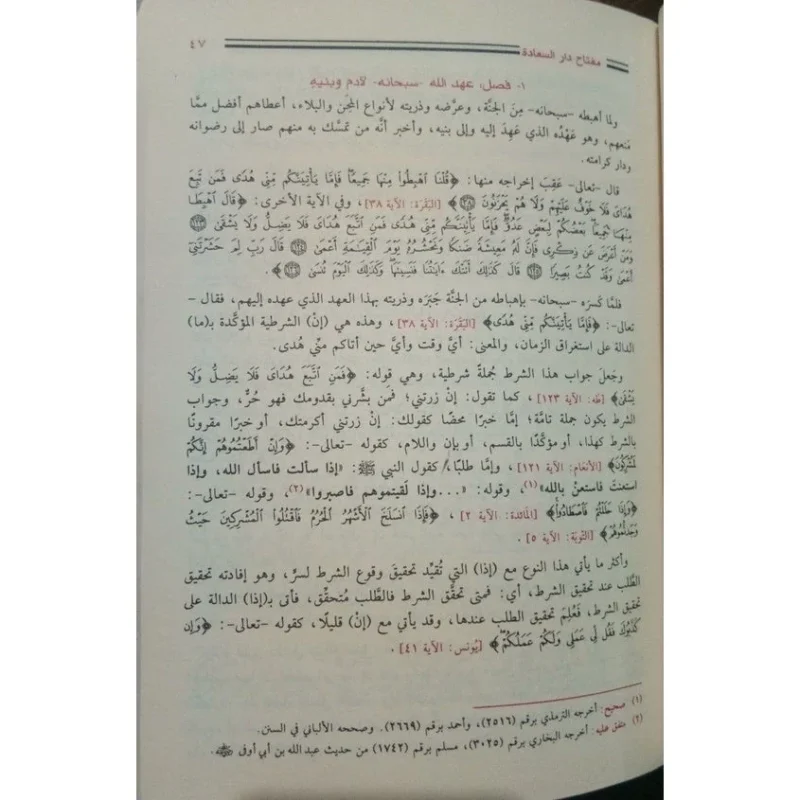 مفتاح دار السعادة ٤٧
١- فصل، عهد الله -سبحانه- لآدم وبنيه
ولما أهبطه -سبحانه- مِنَ الجنَّة، وعرَّضه وذريته لأنواع المِحَن والبلاء، أعطاهم أفضل ممَّا
منعهم، وهو عَهْدُه الذي عَهِدَ إليه وإلى بنيه، وأخبر أنَّه من تمسَّك به منهم صار إلى رضوانه
ودار كرامته.
قال -تعالى- عَقِبَ إخراجه منها: ﴿قُلْنَا اهْبِطُوا مِنْهَا جَمِيعًا فَإِمَّا يَأْتِيَنَّكُم مِّنِّي هُدًى فَمَن تَبِعَ
هُدَايَ فَلَا خَوْفٌ عَلَيْهِمْ وَلَا هُمْ يَحْزَنُونَ ٣٨﴾ [البَقَرَة: الآية ٣٨]، وفي الآية الأخرى: ﴿قَالَ اهْبِطَا
مِنْهَا جَمِيعًا بَعْضُكُمْ لِبَعْضٍ عَدُوٌّ فَإِمَّا يَأْتِيَنَّكُم مِّنِّي هُدًى فَمَنِ اتَّبَعَ هُدَايَ فَلَا يَضِلُّ وَلَا يَشْقَى ١٢٣
وَمَنْ أَعْرَضَ عَن ذِكْرِي فَإِنَّ لَهُ مَعِيشَةً ضَنكًا وَنَحْشُرُهُ يَوْمَ الْقِيَامَةِ أَعْمَى ١٢٤ قَالَ رَبِّ لِمَ حَشَرْتَنِي
أَعْمَى وَقَدْ كُنتُ بَصِيرًا ١٢٥ قَالَ كَذَلِكَ أَتَتْكَ آيَاتُنَا فَنَسِيتَهَا وَكَذَلِكَ الْيَوْمَ تُنسَى ١٢٦﴾.
فلمَّا كَسَرَه -سبحانه- بإهباطه من الجنَّة جَبَرَه وذريته بهذا العهد الذي عهده إليهم، فقال -
تعالى-: ﴿فَإِمَّا يَأْتِيَنَّكُم مِّنِّي هُدًى﴾ [البَقَرَة: الآية ٣٨]، وهذه هي (إنْ) الشرطية المؤكَّدة بـ(ما)
الدالة على استغراق الزمان، والمعنى: أيَّ وقت وأيَّ حين أتاكم منّي هُدى.
وجُعلَ جواب هذا الشرط جُملةً شرطية، وهي قوله: ﴿فَمَنِ اتَّبَعَ هُدَايَ فَلَا يَضِلُّ وَلَا
يَشْقَى﴾ [طه: الآية ١٢٣]، كما تقول: إنْ زرتني؛ فمَن بشَّرني بقدومك فهو حُرٌّ، وجواب
الشرط يكون جملة تامَّة؛ إمَّا خبرًا محضًا كقولك: إنْ زرتني أكرمتك، أو خبرًا مقرونًا
بالشرط كهذا، أو مؤكَّدًا بالقسم، أو بإن واللام، كقوله -تعالى-: ﴿وَإِنْ أَطَعْتُمُوهُمْ إِنَّكُمْ
لَمُشْرِكُونَ﴾ [الأنعَام: الآية ١٢١]، وإمَّا طلبًا/ كقول النبي ﷺ: «إذا سألت فاسأل الله، وإذا
استعنتَ فاستعنْ بالله»(١)، وقوله: «...وإذا لَقيتموهم فاصبروا»(٢)، وقوله -تعالى-:
﴿وَإِذَا حَلَلْتُمْ فَاصْطَادُوا﴾ [المَائدة: الآية ٢]، ﴿فَإِذَا انسَلَخَ الْأَشْهُرُ الْحُرُمُ فَاقْتُلُوا الْمُشْرِكِينَ حَيْثُ
وَجَدتُّمُوهُمْ﴾ [التّوبَة: الآية ٥].
وأكثر ما يأتي هذا النوع مع (إذا) التي تُفيِّد تحقيقَ وقوع الشرط لسرٍّ، وهو إفادته تحقيق
الطَّلب عند تحقيق الشرط، أي: فمتى تحقَّق الشرط فالطَّلب مُتحقِّق، فأتى بـ(إذا) الدالة على
تحقيق الشرط، فَعُلِمَ تحقيق الطلب عندها، وقد يأتي مع (إنْ) قليلًا، كقوله -تعالى-: ﴿وَإِن
كَذَّبُوكَ فَقُل لِّي عَمَلِي وَلَكُمْ عَمَلُكُمْ﴾ [يُونس: الآية ٤١].
(١) صحيح: أخرجه الترمذي برقم (٢٥١٦)، وأحمد برقم (٢٦٦٩). وصححه الألباني في السنن.
(٢) متفق عليه: أخرجه البخاري برقم (٣٠٢٥)، مسلم برقم (١٧٤٢) من حديث عبد الله بن أبي أوفى ﷺ.